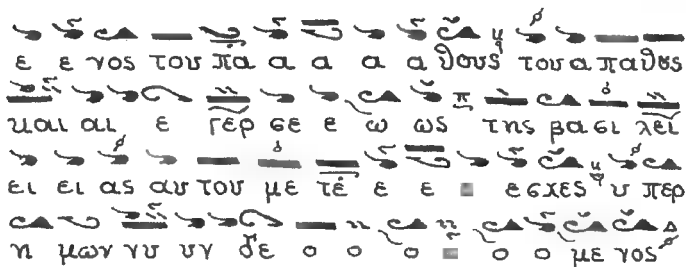 ε ε νος του πά α α α α θους του α παθȣς
και αι ε γέρ σε ε ω ως της βα σι λεί
ει ει ας αυ του με τέ ε ε ε σχες υ περ
η μων νυ υν δε ο ο ο ο ο με νος